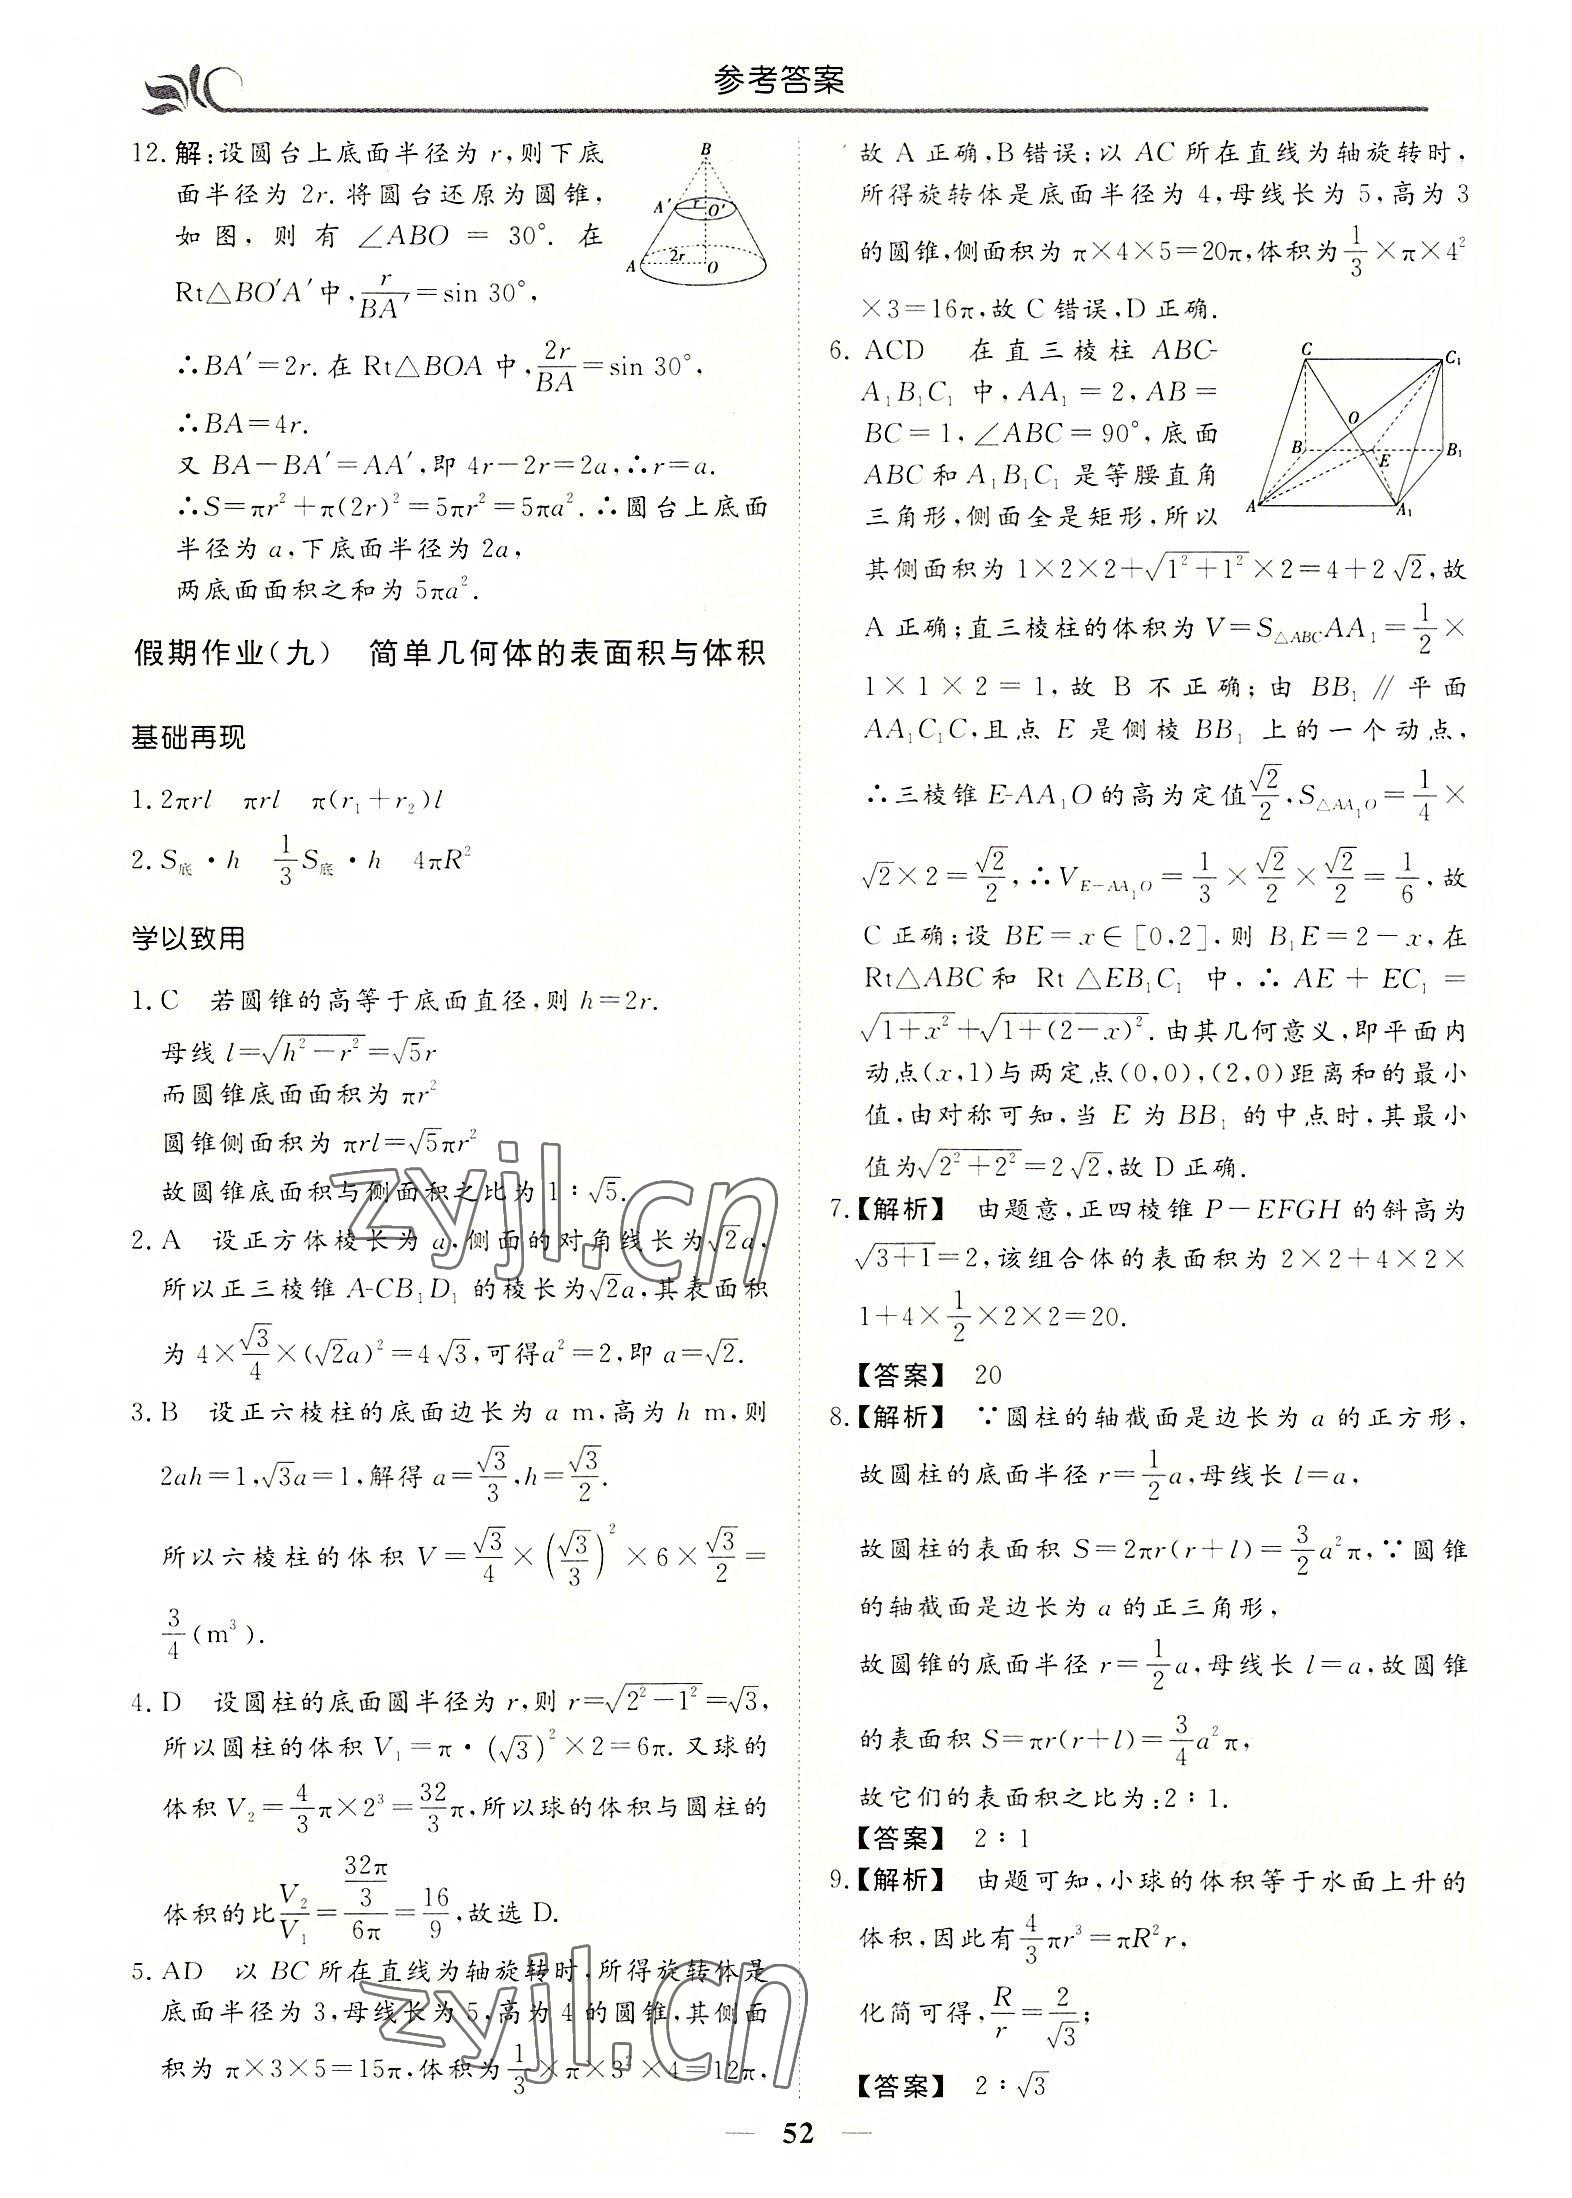 参考答案
12.解:设圆台上底面半径为 r,则下底
面半径为 2r.将圆台还原为圆锥,
如图,则有 ∠ABO = 30°. 在
Rt△BO′A′中,r/BA′=sin 30°,
∴BA′=2r.在 Rt△BOA 中,2r/BA=sin 30°,
∴BA=4r.
又 BA-BA′=AA′,即 4r-2r=2a,∴r=a.
∴S=πr²+π(2r)²=5πr²=5πa².∴圆台上底面
半径为 a,下底面半径为 2a,
两底面面积之和为 5πa².
B
A′ r O′
A 2r O
假期作业(九) 简单几何体的表面积与体积
基础再现
1.2πrl πrl π(r₁+r₂)l
2.S底·h 1/3 S底·h 4πR²
学以致用
1.C 若圆锥的高等于底面直径,则 h=2r.
母线 l=√(h²-r²)=√5r
而圆锥底面面积为 πr²
圆锥侧面积为 πrl=√5πr²
故圆锥底面积与侧面积之比为 1∶√5.
2.A 设正方体棱长为 a,侧面的对角线长为√2a,
所以正三棱锥 A-CB₁D₁ 的棱长为√2a,其表面积
为 4×√3/4×(√2a)²=4√3,可得a²=2,即 a=√2.
3.B 设正六棱柱的底面边长为 a m,高为 h m,则
2ah=1,√3a=1,解得 a=√3/3,h=√3/2.
所以六棱柱的体积 V=√3/4×(√3/3)²×6×√3/2=
3/4(m³).
4.D 设圆柱的底面圆半径为 r,则 r=√(2²-1²)=√3,
所以圆柱的体积 V₁=π·(√3)²×2=6π. 又球的
体积 V₂=4/3π×2³=32/3π,所以球的体积与圆柱的
体积的比V₂/V₁=(32π/3)/6π=16/9,故选 D.
5.AD 以 BC 所在直线为轴旋转时,所得旋转体是
底面半径为 3,母线长为 5,高为 4 的圆锥,其侧面
积为 π×3×5=15π,体积为1/3×π×3²×4=12π,
故 A 正确,B 错误;以 AC 所在直线为轴旋转时,
所得旋转体是底面半径为 4,母线长为 5,高为 3
的圆锥,侧面积为 π×4×5=20π,体积为1/3×π×4²
×3=16π,故 C 错误,D 正确.
6. ACD 在直三棱柱 ABC-
A₁B₁C₁ 中,AA₁=2,AB=
BC=1,∠ABC=90°,底面
ABC 和 A₁B₁C₁ 是等腰直角
三角形,侧面全是矩形,所以
C C₁
O
B E B₁
A A₁
其侧面积为 1×2×2+√(1²+1²)×2=4+2√2,故
A 正确;直三棱柱的体积为 V=S△ABC AA₁=1/2×
1×1×2=1,故 B 不正确;由 BB₁∥平面
AA₁C₁C,且点 E 是侧棱 BB₁ 上的一个动点,
∴三棱锥 E-AA₁O 的高为定值√2/2,S△AA₁O=1/4×
√2×2=√2/2,∴V E-AA₁O=1/3×√2/2×√2/2=1/6,故
C 正确;设 BE=x∈[0,2],则 B₁E=2-x,在
Rt△ABC 和 Rt △EB₁C₁ 中,∴ AE + EC₁ =
√(1+x²)+√(1+(2-x)²).由其几何意义,即平面内
动点(x,1)与两定点(0,0),(2,0)距离和的最小
值,由对称可知,当 E 为 BB₁ 的中点时,其最小
值为√(2²+2²)=2√2,故 D 正确.
7.【解析】 由题意,正四棱锥 P-EFGH 的斜高为
√(3+1)=2,该组合体的表面积为 2×2+4×2×
1+4×1/2×2×2=20.
【答案】 20
8.【解析】 ∵圆柱的轴截面是边长为 a 的正方形,
故圆柱的底面半径 r=1/2a,母线长 l=a,
故圆柱的表面积 S=2πr(r+l)=3/2a²π,∵圆锥
的轴截面是边长为 a 的正三角形,
故圆锥的底面半径 r=1/2a,母线长 l=a,故圆锥
的表面积 S=πr(r+l)=3/4a²π,
故它们的表面积之比为:2∶1.
【答案】 2∶1
9.【解析】 由题可知,小球的体积等于水面上升的
体积,因此有4/3πr³=πR²r,
化简可得,R/r=2/√3;
【答案】 2∶√3
zyjl.cn
zyjl.cn
— 52 —